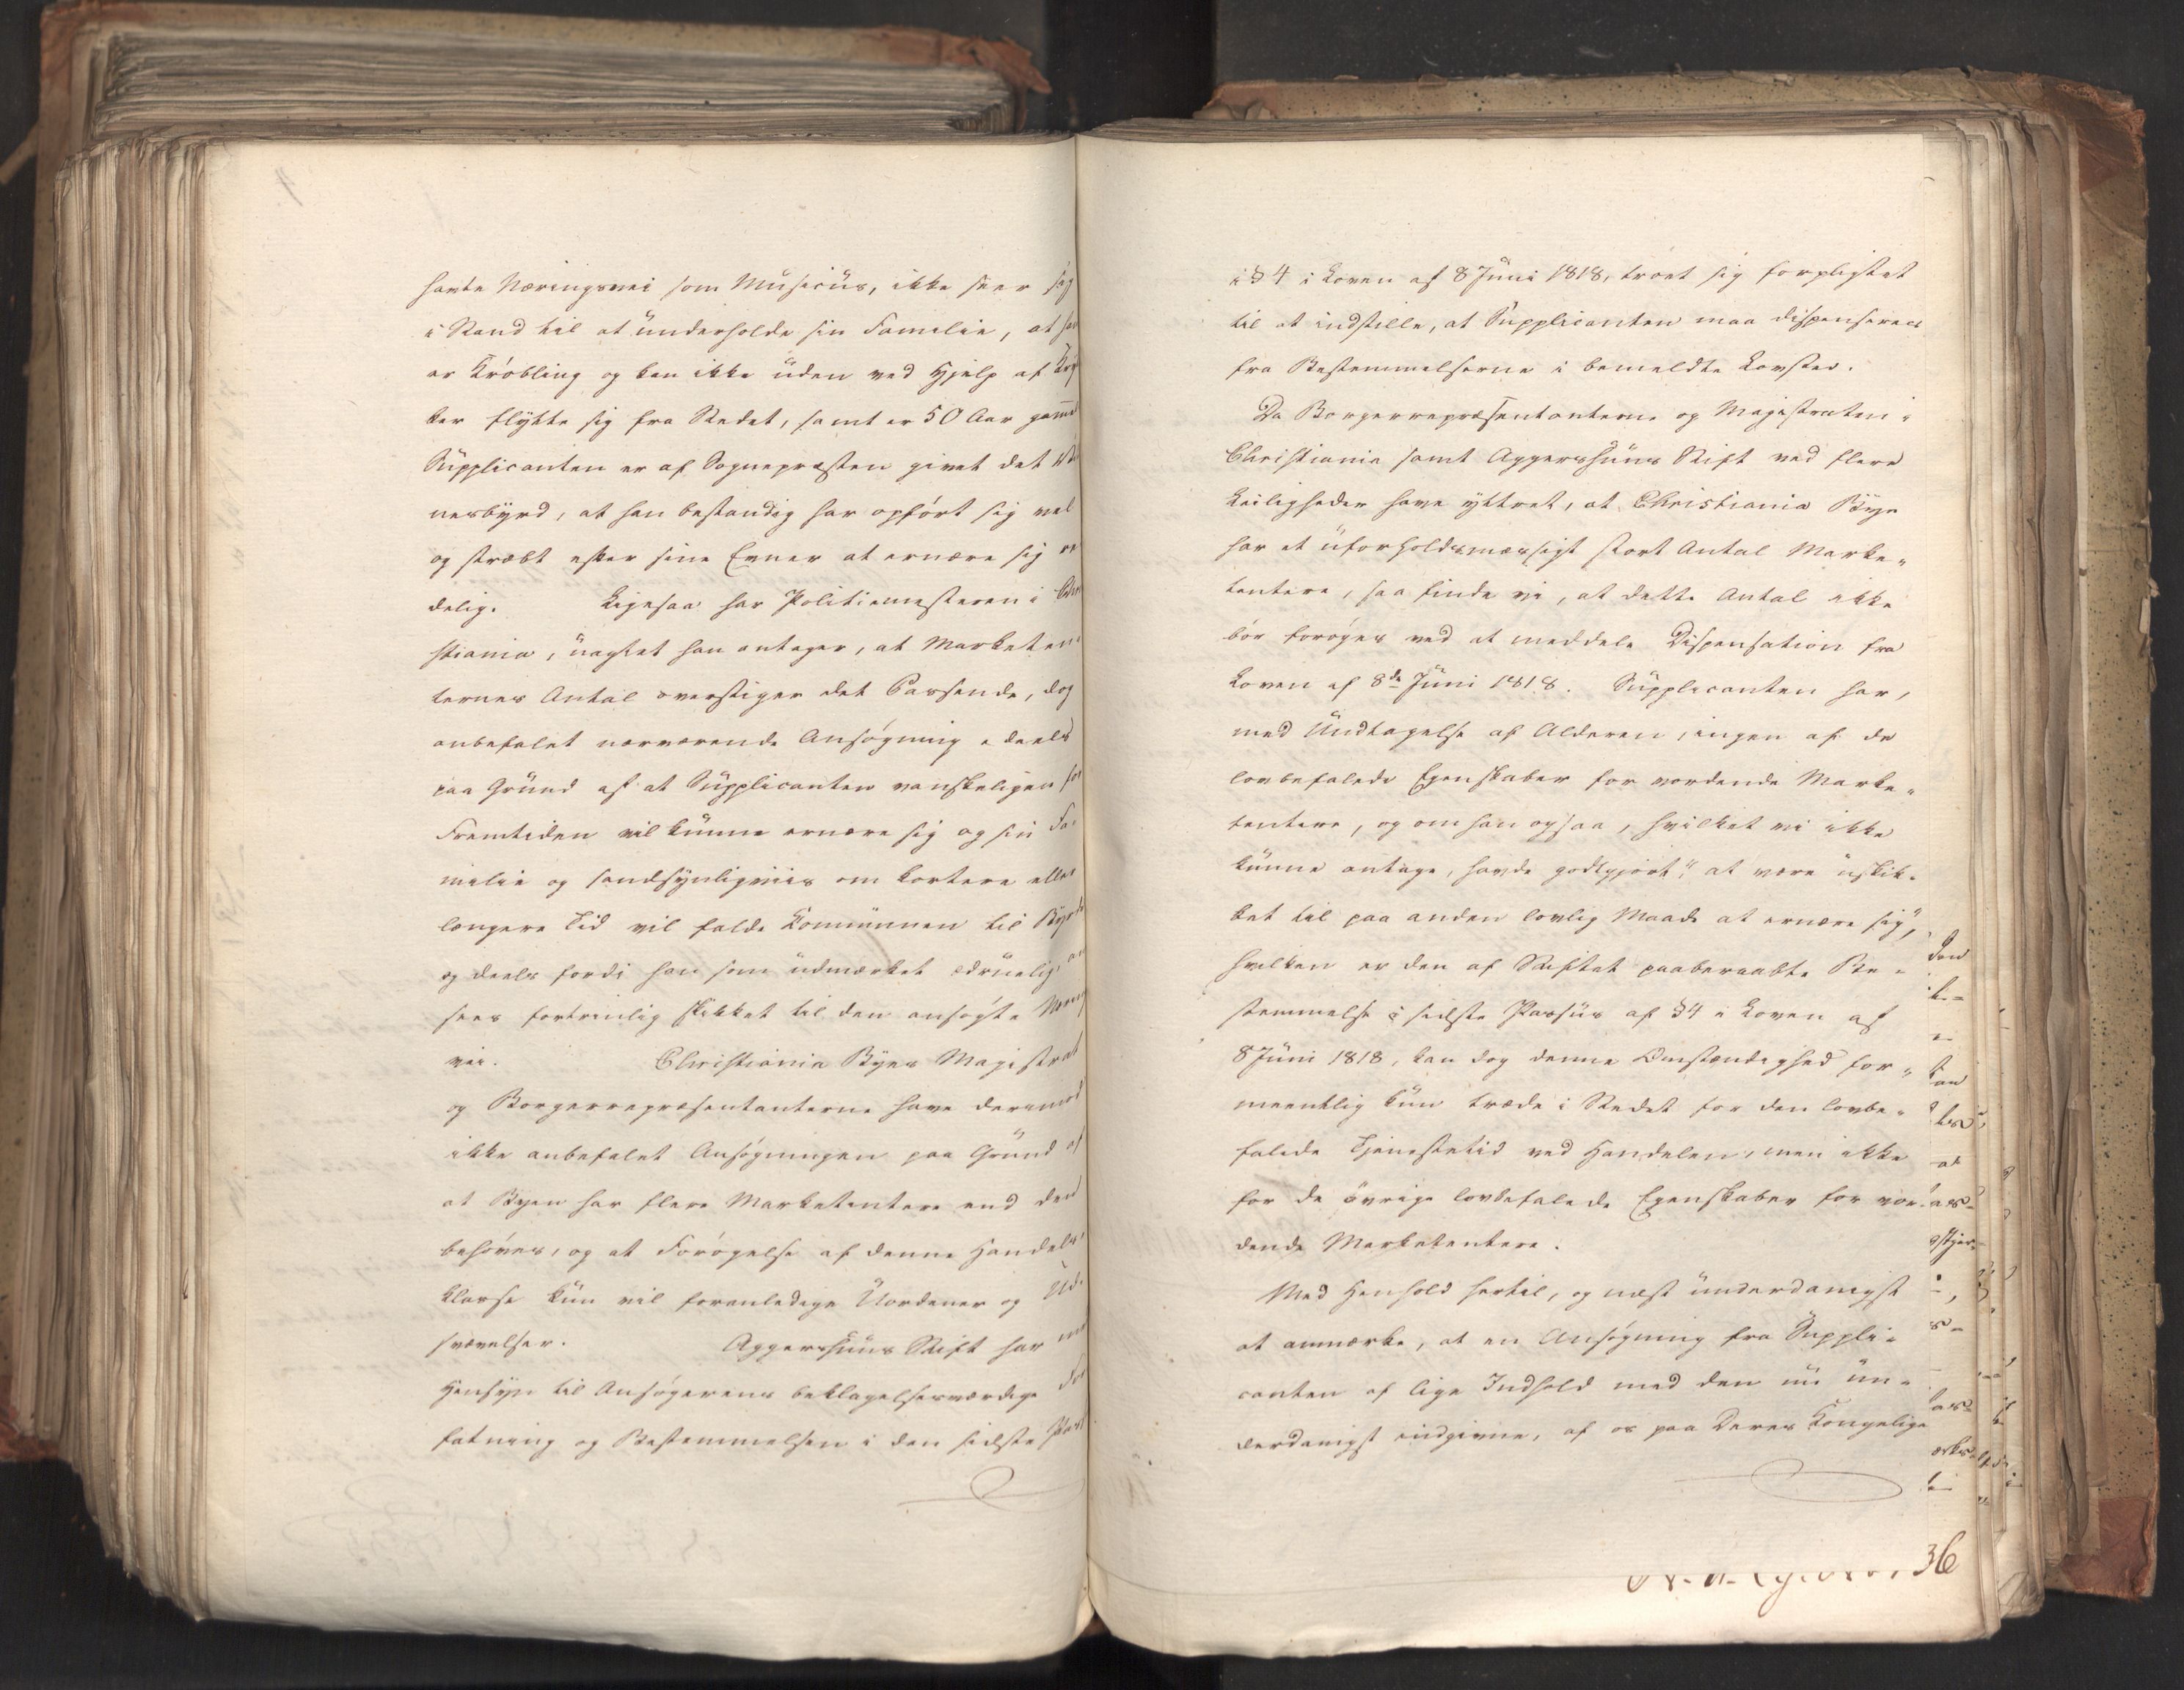 havte Næringsvei som Musicus, ikke seer sig
i Stand til at underholde sin Familie, at han
er Krøbling og kan ikke uden ved Hjelp af Kryk
ker flytte sig fra Stedet, samt er 50 Aar gammel
Supplicanten er af Sognepræsten givet det Vid
nesbyrd, at han bestandig har opført sig vel
og stræbt efter sine Evner at ernære sig re
delig. Ligesaa har Politiemesteren i Chri
stiania, uagtet han antager, at Marketen
ternes Antal overstiger det Passende, dog
anbefalet nærværende Ansøgning, deels
paa Grund af at Supplicanten vanskeligen for
Fremtiden vil kunne ernære sig og sin Fa-
milie og sandsynligviis om kortere eller
længere Tid vil falde Kommunen til Byrde
og deels fordi han som udmærket ædruelig, an
sees fortrinlig skikket til den ansøgte Nærings
vei. Christiania Byes Magistrat
og Borgerrepræsentanterne have derimod
ikke anbefalet Ansøgningen paa Grund af
at Byen har flere Marketentere end den
behøver, og at Forøgelse af denne Handels-
klasse kun vil foranledige Uordener og Ud-
svævelser. Aggershuus Stift har med
Hensyn til Ansøgerens beklagelsesværdige For
fatning og Bestemmelsen i den sidste Post
i § 4 i Loven af 8 Juni 1818, troet sig forpligtet
til at indstille, at Supplicanten maa dispenseres
fra Bestemmelserne i bemeldte Lovsted.
Da Borgerrepræsentanterne og Magistraten i
Christiania samt Aggershuus Stift ved flere
Leiligheder have yttret, at Christiania Bye
har et uforholdsmæssigt stort Antal Marke„
tentere, saa finde vi, at dette Antal ikke
bør forøges ved at meddele Dispensation fra
Loven af 8de Juni 1818. Supplicanten har,
med Undtagelse af Alderen, ingen af de
lovbefalede Egenskaber for vordende Marke„
tentere, og om han ogsaa, hvilket vi ikke
kunne antage, havde godtgjort "at være uskik-
ket til paa anden lovlig Maade at ernære sig",
hvilken er den af Stiftet paaberaabte Be-
stemmelse i sidste Passus af § 4 i Loven af
8 Juni 1818, kan dog denne Omstændighed for„
meentlig kun træde i Stedet for den lovbe-
falede Tjenestetid ved Handelen, men ikke
for de øvrige lovbefalede Egenskaber for vor-
dende Marketentere.
Med Henhold hertil, og næst underdanigst
at anmærke, at en Ansøgning fra Suppli-
canten af lige Indhold med den nu un-
derdanigst indgivne, af os paa Deres Kongelige
36